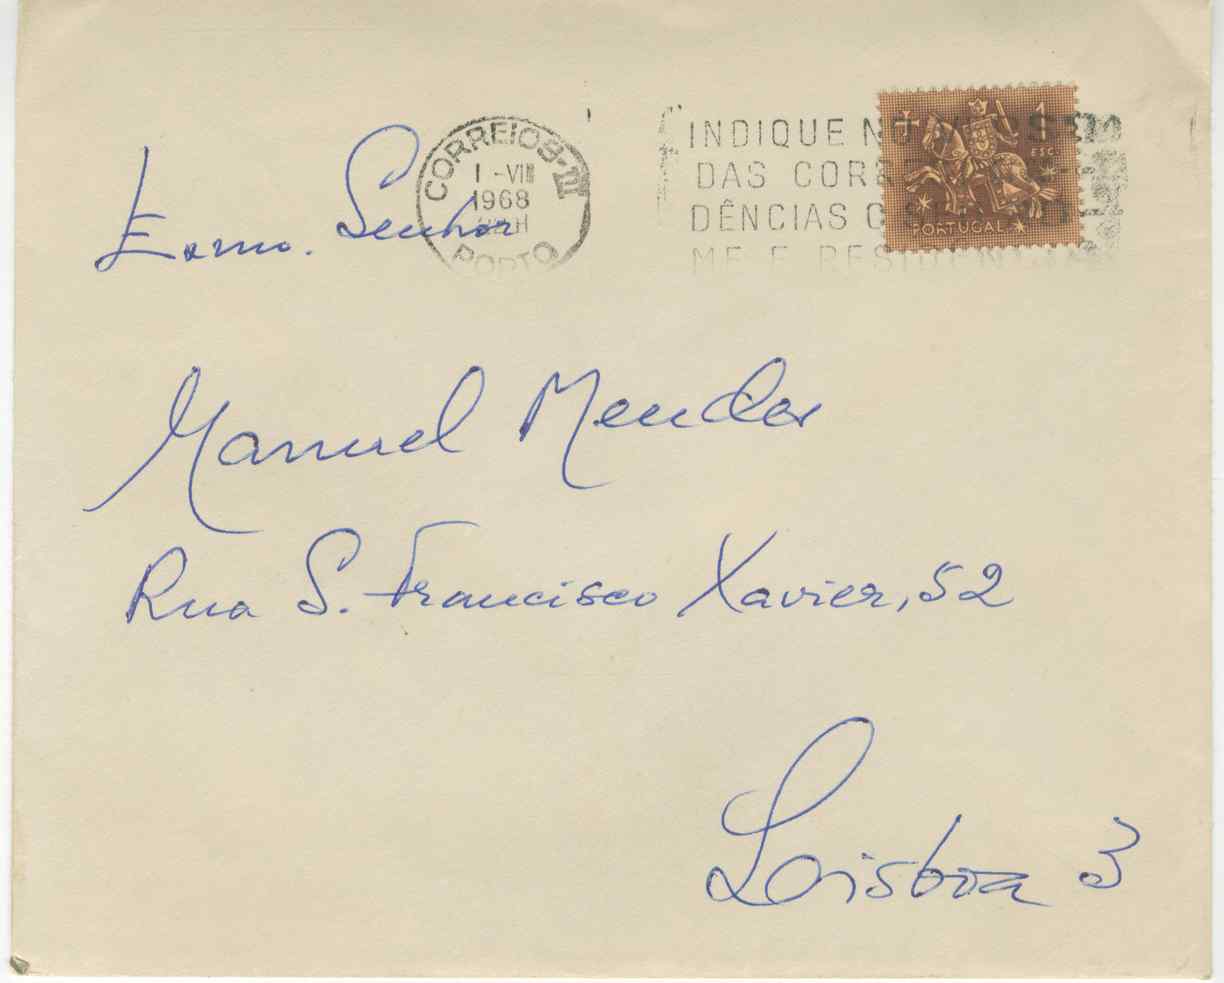 CORREIOS-III
1-VIII
1968
PORTO
INDIQUE NO
DAS
DÊNCIAS
ME E
1
ESC.
PORTUGAL
Exmo. Senhor
Manuel Mendes
Rua S. Francisco Xavier, 52
Lisboa 3